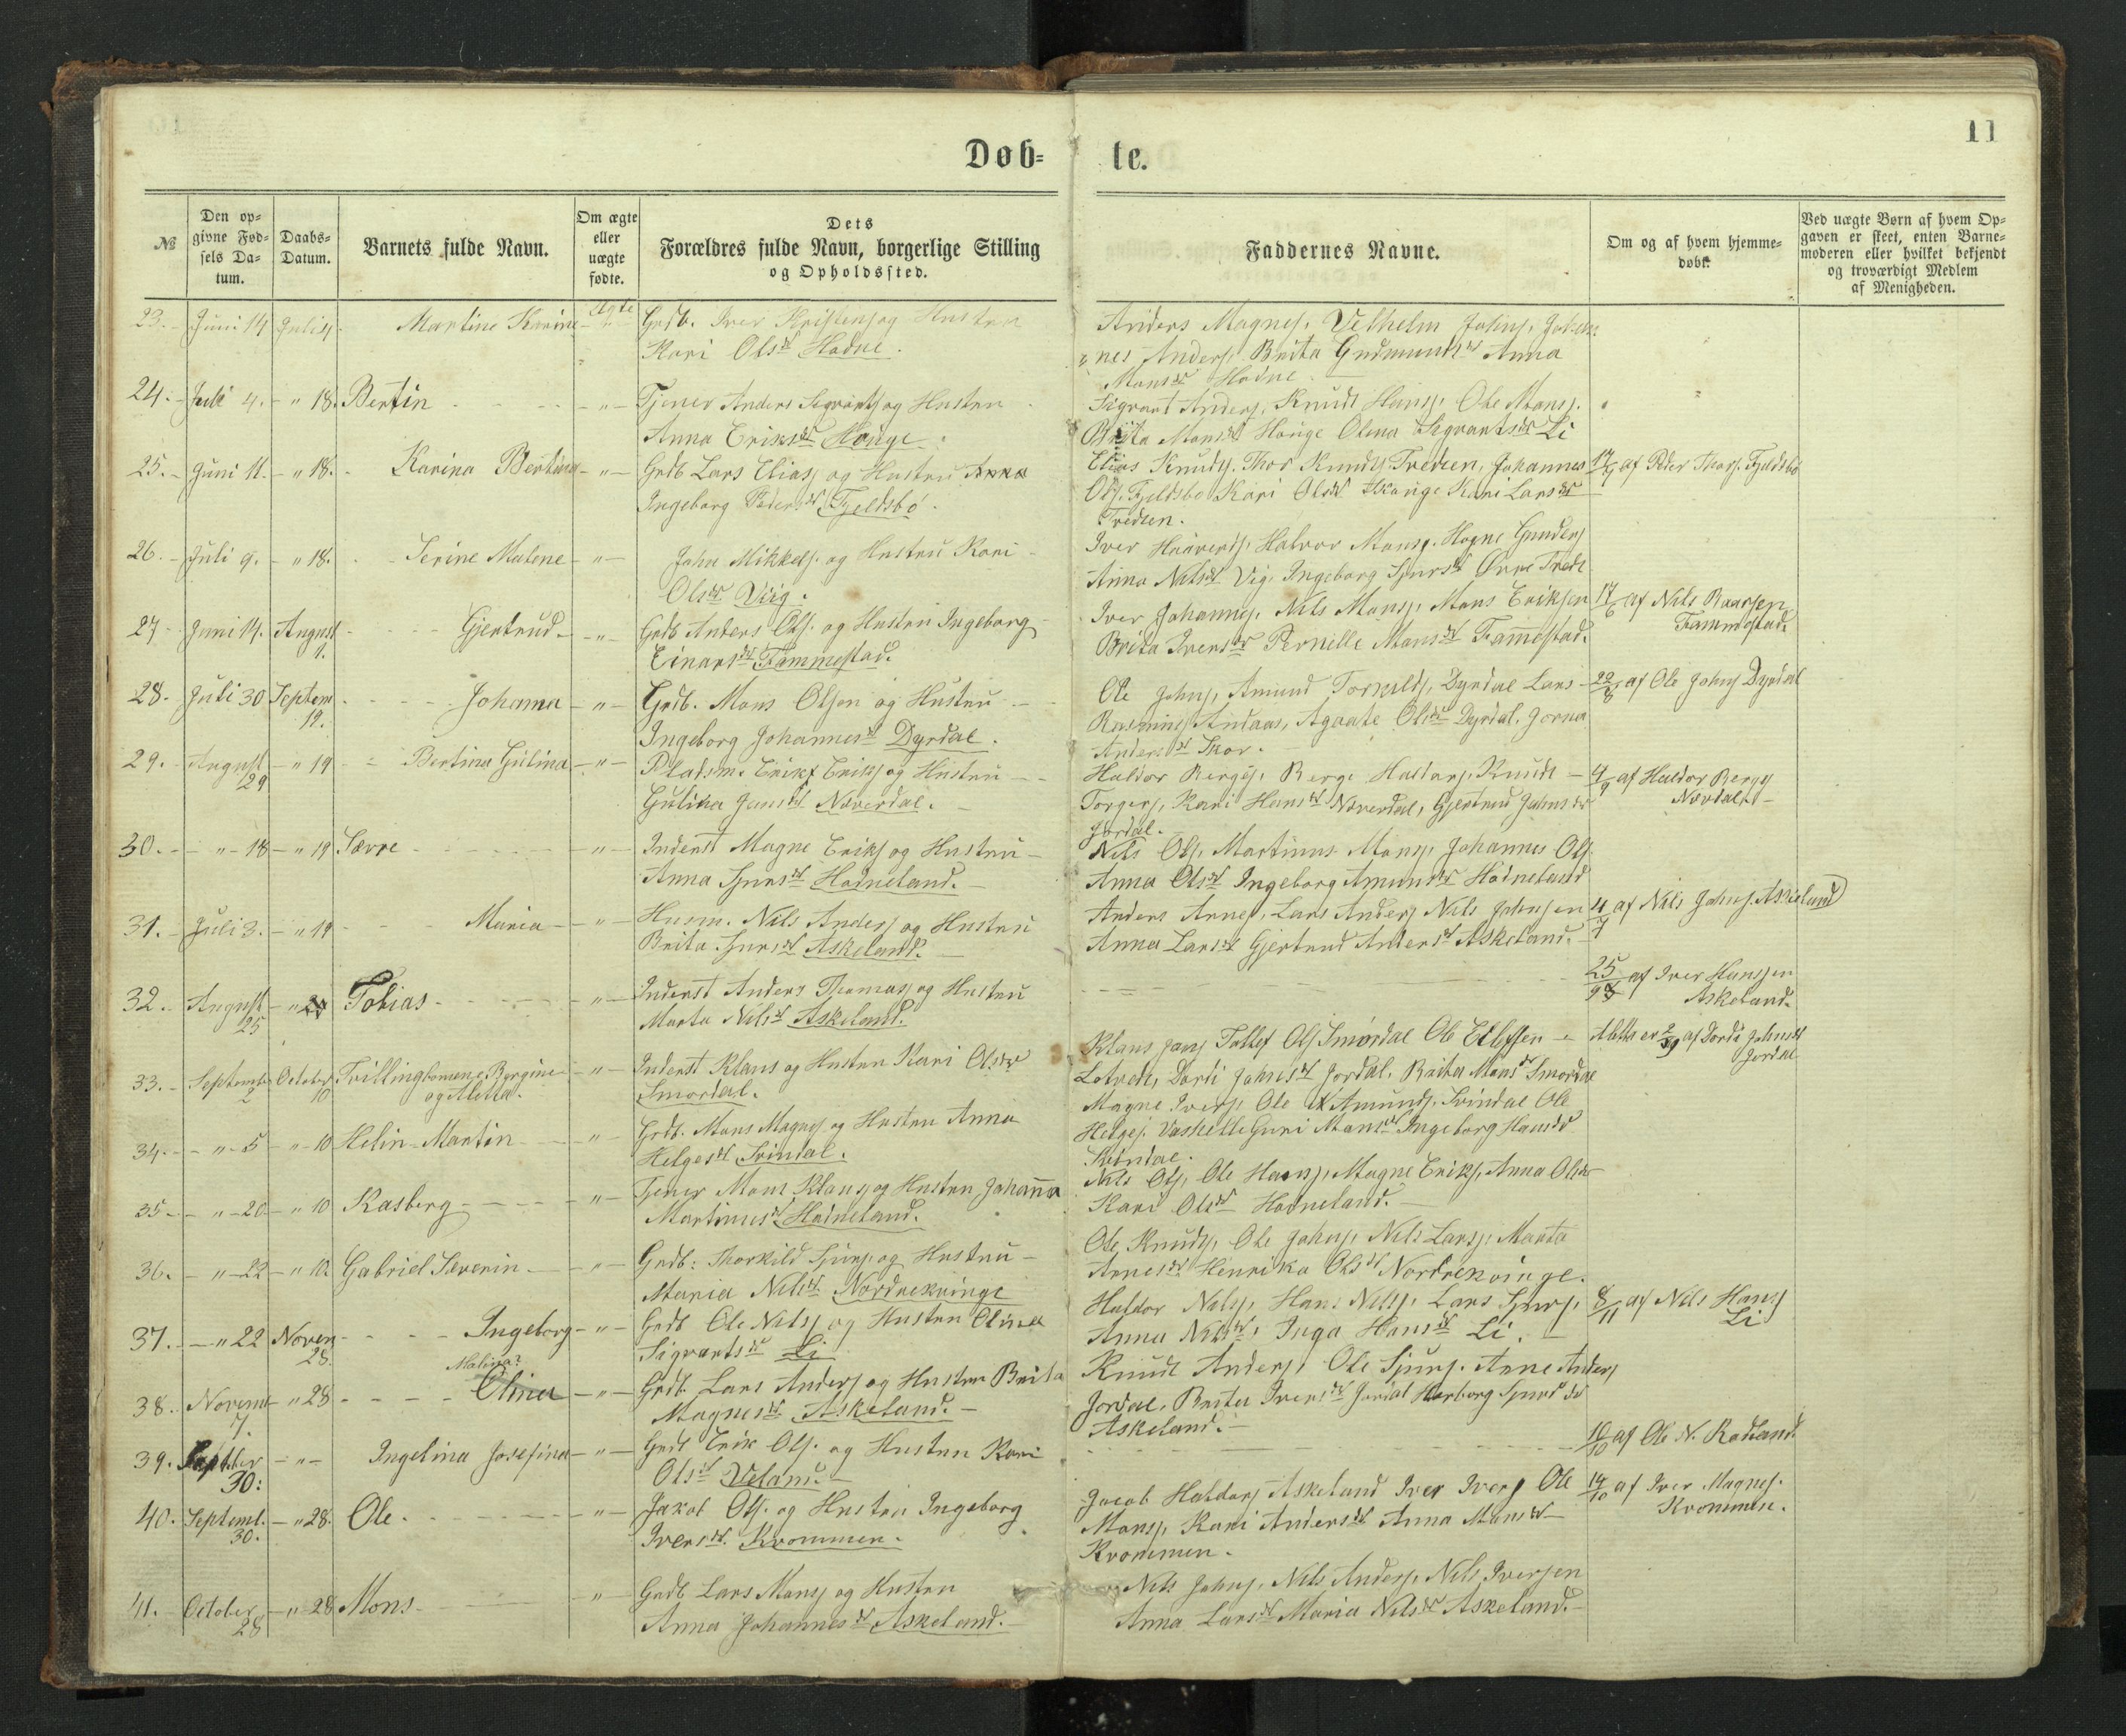 11
Døb-
te.
№
Den op-
givne Fød-
sels Da-
tum.
Daabs-
Datum.
Barnets fulde Navn.
Om ægte
eller
uægte
fødte.
Dets
Forældres fulde Navn, borgerlige Stilling
og Opholdssted.
Faddernes Navne.
Om og af hvem hjemme-
døbt.
Ved uægte Børn af hvem Op-
gaven er skeet, enten Barne-
moderen eller hvilket bekjendt
og troværdigt Medlem
af Menigheden.
23. Juni 14 Juli 4 Martine Karine Ægte Grdb. Iver Kristens og Hustru
Kari Olsdr Hodne.
Anders Magnes. Velhelm Johns. Johan-
nes Anders. Brita Gudmundsdr Anna
Monsdr Hodne
24. Juli 4. " 18. Bertin " Tjener Anders Sigvards og Hustru
Anna Eriksdr Hauge.
Sigvart Anders. Knudt Hans. Ole Mons.
Brita Monsdr Hauge Olena Sigvartsdr Li
25. Juni 11. " 18. Karina Bertina " Grdb Lars Elias og Hustru Anna
Ingeborg Pedersdr Fjeldsbø.
Elias Knuds. Thor Knuds. Tveden, Johannes
Ols. Fjeldsbø Kari Olsdr Kari Larsdr
Tveden.
af Peder Thors. Fjeldsbø
26. Juli 9. " 18. Serine Malene " John Mikkels. og Hustru Kari
Olsdr Viig.
Iver Halvor Mons. Hogne Gunders
Anna Nilsdr Vig. Ingeborg Sjursdr
27 Juni 14. August
1. Gjertrud " Grdb Anders Ols. og Hustru Ingeborg
Einarsdr Fammestad.
Iver Johannes. Nils Mons. Mons Eriksen
Brita Iversdr Pernille Monsdr Fammestad.
17/6 af Nils Baarsen
Fammestad.
28. Juli 30 Septem
19. Johanna " Grdb. Mons Olsen og Hustru
Ingeborg Johannesdr Dyrdal.
Ole Johns, Amund Torkilds, Dyrdal Lars
Andaas, Agaate Olsdr Dyrdal.
Andersdr Skor.
22/8 af Ole Johns Dyrdal
29. August
29 " 19 Bertina Gulina " Pladsm. Erik Eriks og Hustru
Gulina Jansdr Nøverdal.
Haldor Berges. Berge Haldors. Knudt
Torgers. Kari Hansdr Nøverdal, Gjertrud Johnsdr
Jordal.
4/9 af Haldor Berges
30. " 18 " 19 Særre " Inderst Magne Eriks og Hustru
Anna Sjursdr Hodneland.
Nils Ols. Martinus Mons. Johannes Ols
Anna Olsdr Ingeborg Amundsdr Hodneland
31. Juli 3. " 19 Maria " Husm. Nils Anders og Hustru
Brita Sjursdr Askeland.
Anders Arnes. Lars Anders Nils Johnsen
Anna Larsdr Gjertrud Andersdr Askeland.
4/7 af Nils Johns. Askeland
32. August
25 Tobias " Inderst Anders Thomas og Hustru
Marta Nilsdr Askeland.
af Iver Hansen
Askeland.
33. September
2 October
10 Tvillingborne Bergine
og Aletta. " Inderst Klaus og Hustru Kari Olsdr
Smørdal.
Klaus Jans Tollef Ols Smørdal Ole Ellefsen
Dordi Johnsdr Jordal. Brita Monsdr Smørdal
2/9 af Dordi Johnsdr
Jordal
34. " 5 " 10 Helin Martin " Grdb. Mons Magnes og Hustru Anna
Helgesdr Svindal.
Magne Ivers. Ole Amunds. Svindal Ole
Helges. Guri Monsdr Ingeborg Hansdr
Svindal.
35. " 20 " 10 Kasberg " Tjener Mons Klaus og Hustru Johanna
Martinusdr Hodneland.
Nils Ols. Ole Hans. Magne Eriks. Anna Olsdr
Kari Olsdr Hodneland.
36. " 22 " 10. Gabriel Severin " Grdb: Thorkild Sjurs og Hustru
Maria Nilsdr Nordrekvinge
Ole Knuds. Ole Johns. Nils Lars. Marta
Arnesdr Henrika Olsdr Nordrekvinge.
37. " 22 Novem
28. Ingeborg " Grdb Ole Nils og Hustru Olina
Sigvartsdr Li
Haldor Nils. Hans Nils. Lars Sjurs.
Anna Nilsdr Inga Hansdr Li.
8/11 af Nils Hans
Li
38. Novemb
7. " 28 Malina?
Olina " Grdb. Lars Anders og Hustru Brita
Magnesdr Askeland.
Knudt Anders. Ole Sjurs. Anne Anders
Jordal, Brita Iversdr Jordal Herborg Sjursdr
Askeland.
39. Septber
30: " Ingelina Josefina " Grdb Erik Ols. og Hustru Kari
Olsdr Veland.
10/10 af Ole N. Rødland
40. Septemb.
30. " 28. Ole " Jakob Ols. og Hustru Ingeborg
Iversdr. Krommen.
Jacob Haldors Askeland Iver Ivers Ole
Mons. Kari Andersdr Anna Monsdr
Krommen.
14/10 af Iver Magnes.
Krommen.
41. October
28 " 28 Mons " Grdb Lars Mons og Hustru
Anna Johannesdr Askeland.
Nils Johns. Nils Anders. Nils Iversen
Anna Larsdr Maria Nilsdr Askeland.